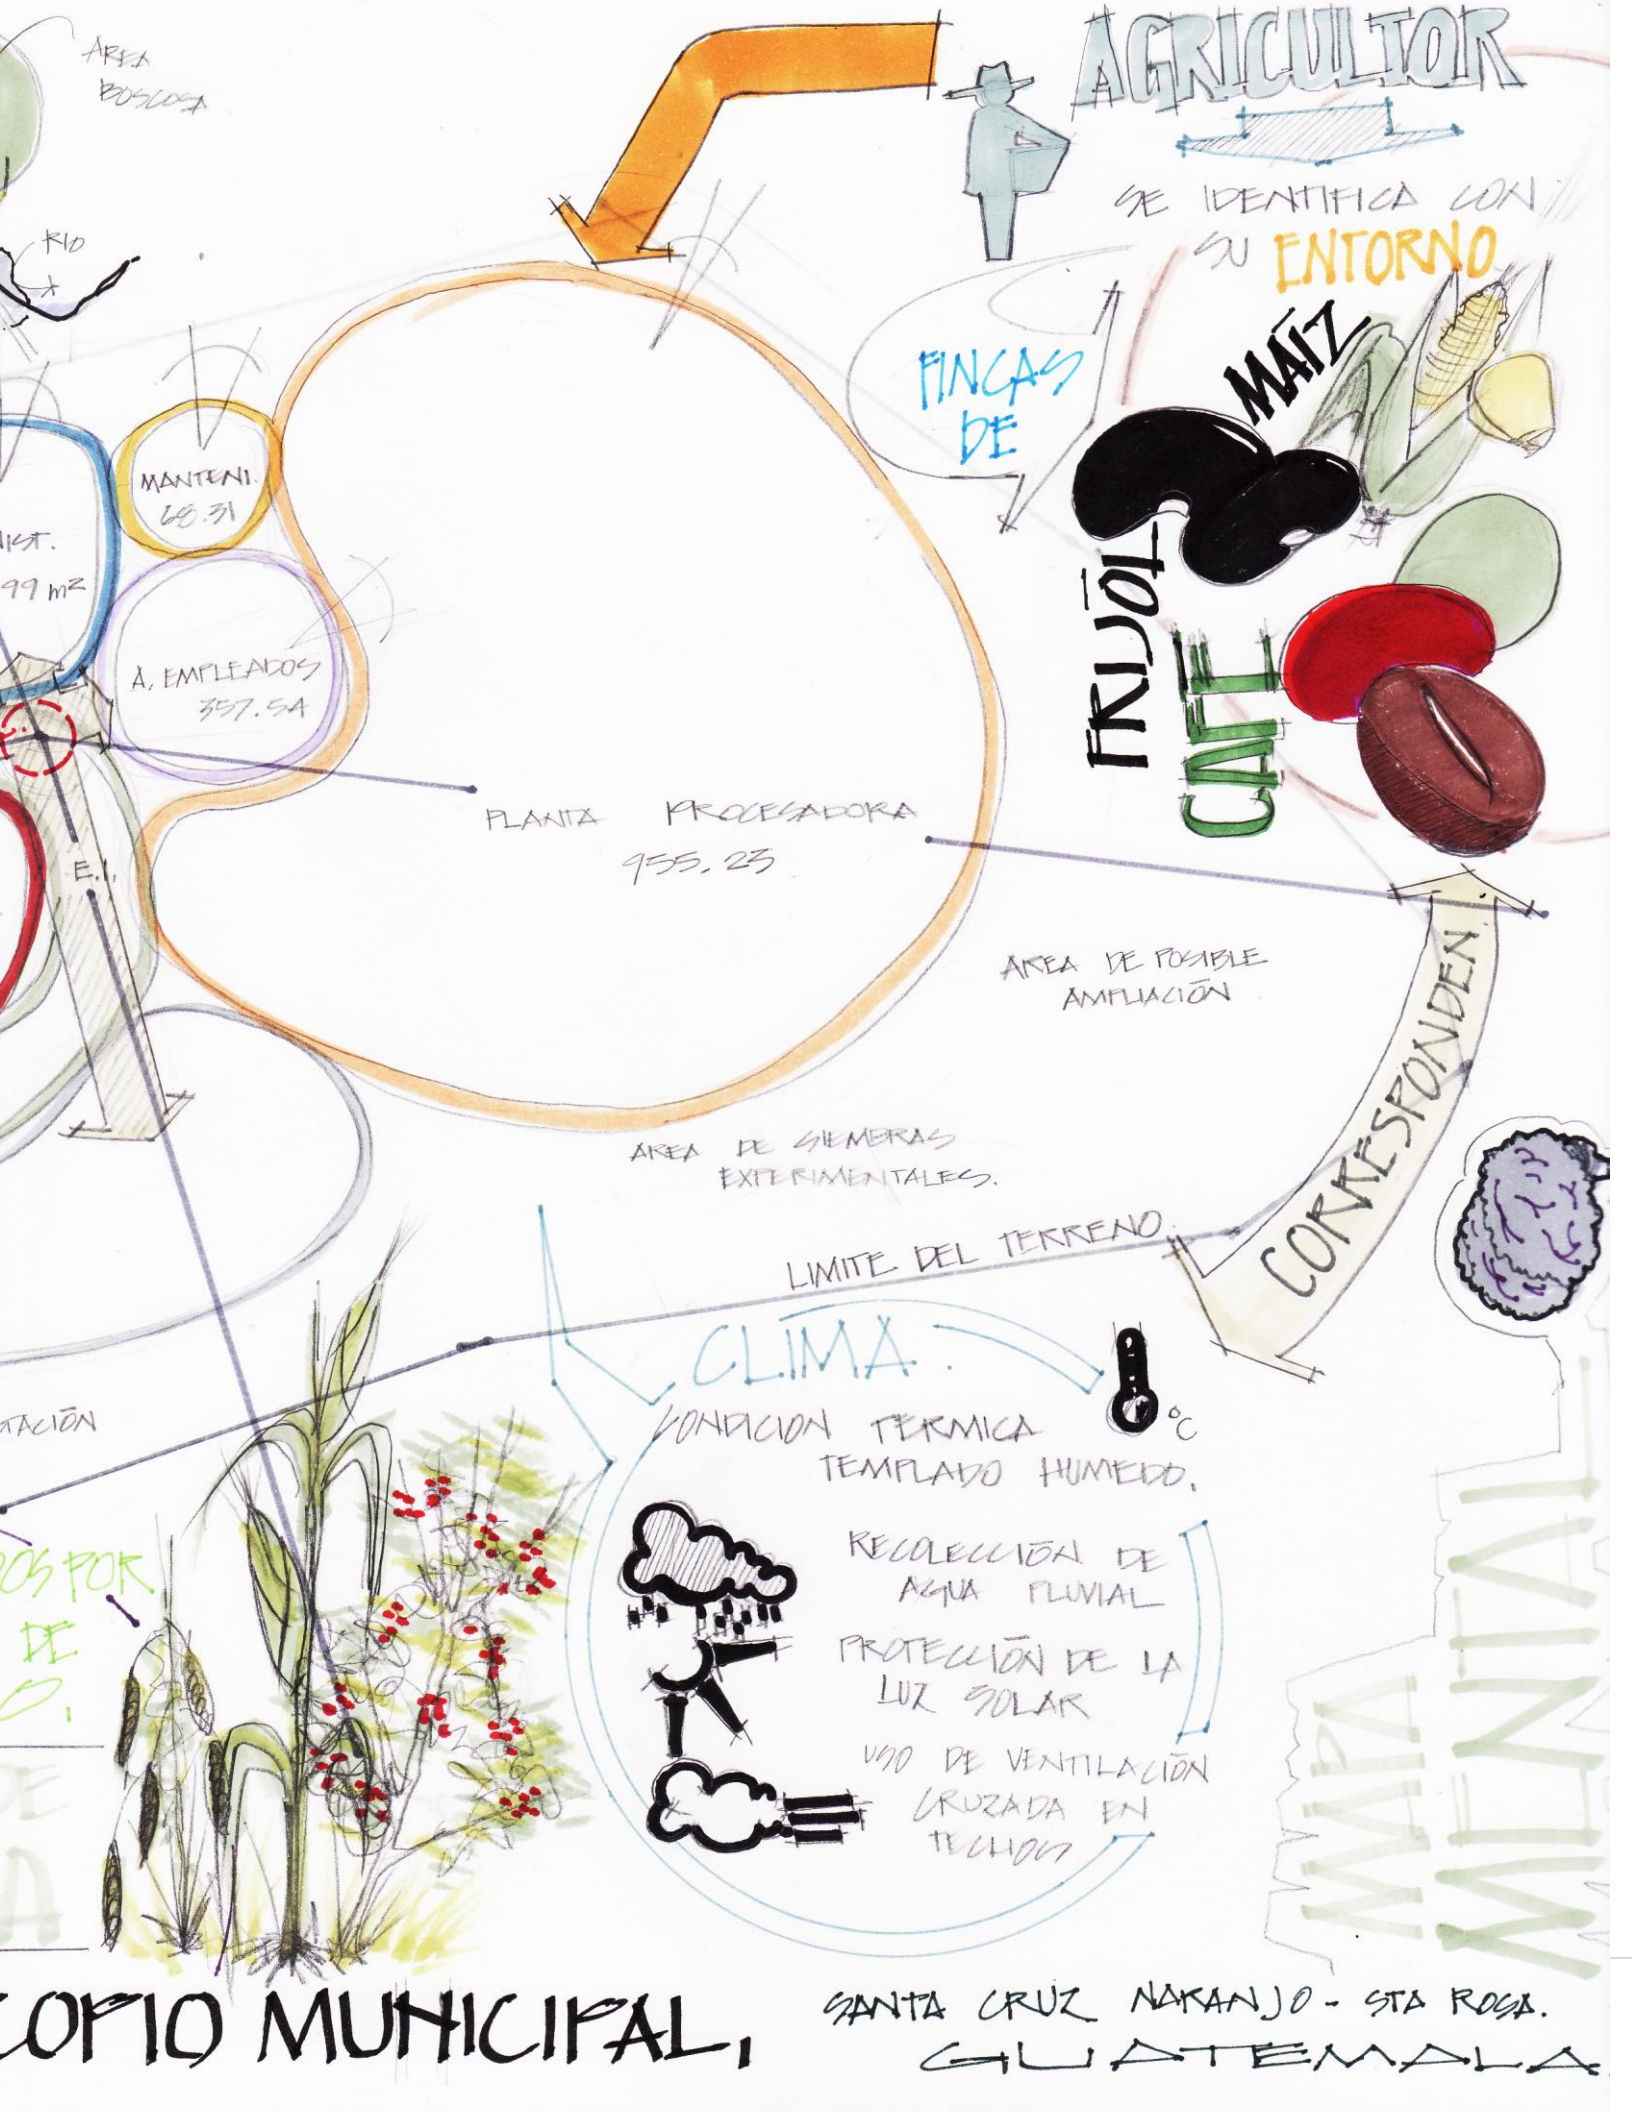 AREA
BOSCOSA
RIO
AGRICULTOR
SE IDENTIFICA CON
SU ENTORNO
FINCAS
DE
MAÍZ
FRIJOL
CAFE
MANTENI.
68.31
NIST.
99 m2
A. EMPLEADOS
357.54
E.I.
PLANTA PROCESADORA
955.23
AREA DE POSIBLE
AMPLIACIÓN
CORRESPONDEN
AREA DE SIEMBRAS
EXPERIMENTALES.
LIMITE DEL TERRENO
CLIMA.
°C
CONDICION TERMICA
TEMPLADO HUMEDO.
RECOLECCIÓN DE
AGUA PLUVIAL
PROTECCIÓN DE LA
LUZ SOLAR
USO DE VENTILACIÓN
CRUZADA EN
TECHOS
TACIÓN
OS POR
DE
O.
DE
A
COPIO MUNICIPAL,
SANTA CRUZ NARANJO - STA ROSA.
GUATEMALA